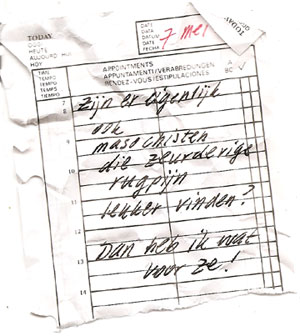 TODAY
OGGI
HEUTE
AUJOURD'HUI
HOY
DATE
DATA
DATUM
DATE
FECHA
7 mei
TIME
TEMPO
TEMPO
TEMPS
TIEMPO
APPOINTMENTS
APPUNTAMENTI/VERABREDUNGEN
RENDEZ-VOUS/ESTIPULACIONES
7
8
9
10
11
12
13
14
zijn er eigenlijk
ook
masochisten
die zeurderige
rugpijn
lekker vinden?
Dan heb ik wat
voor ze!